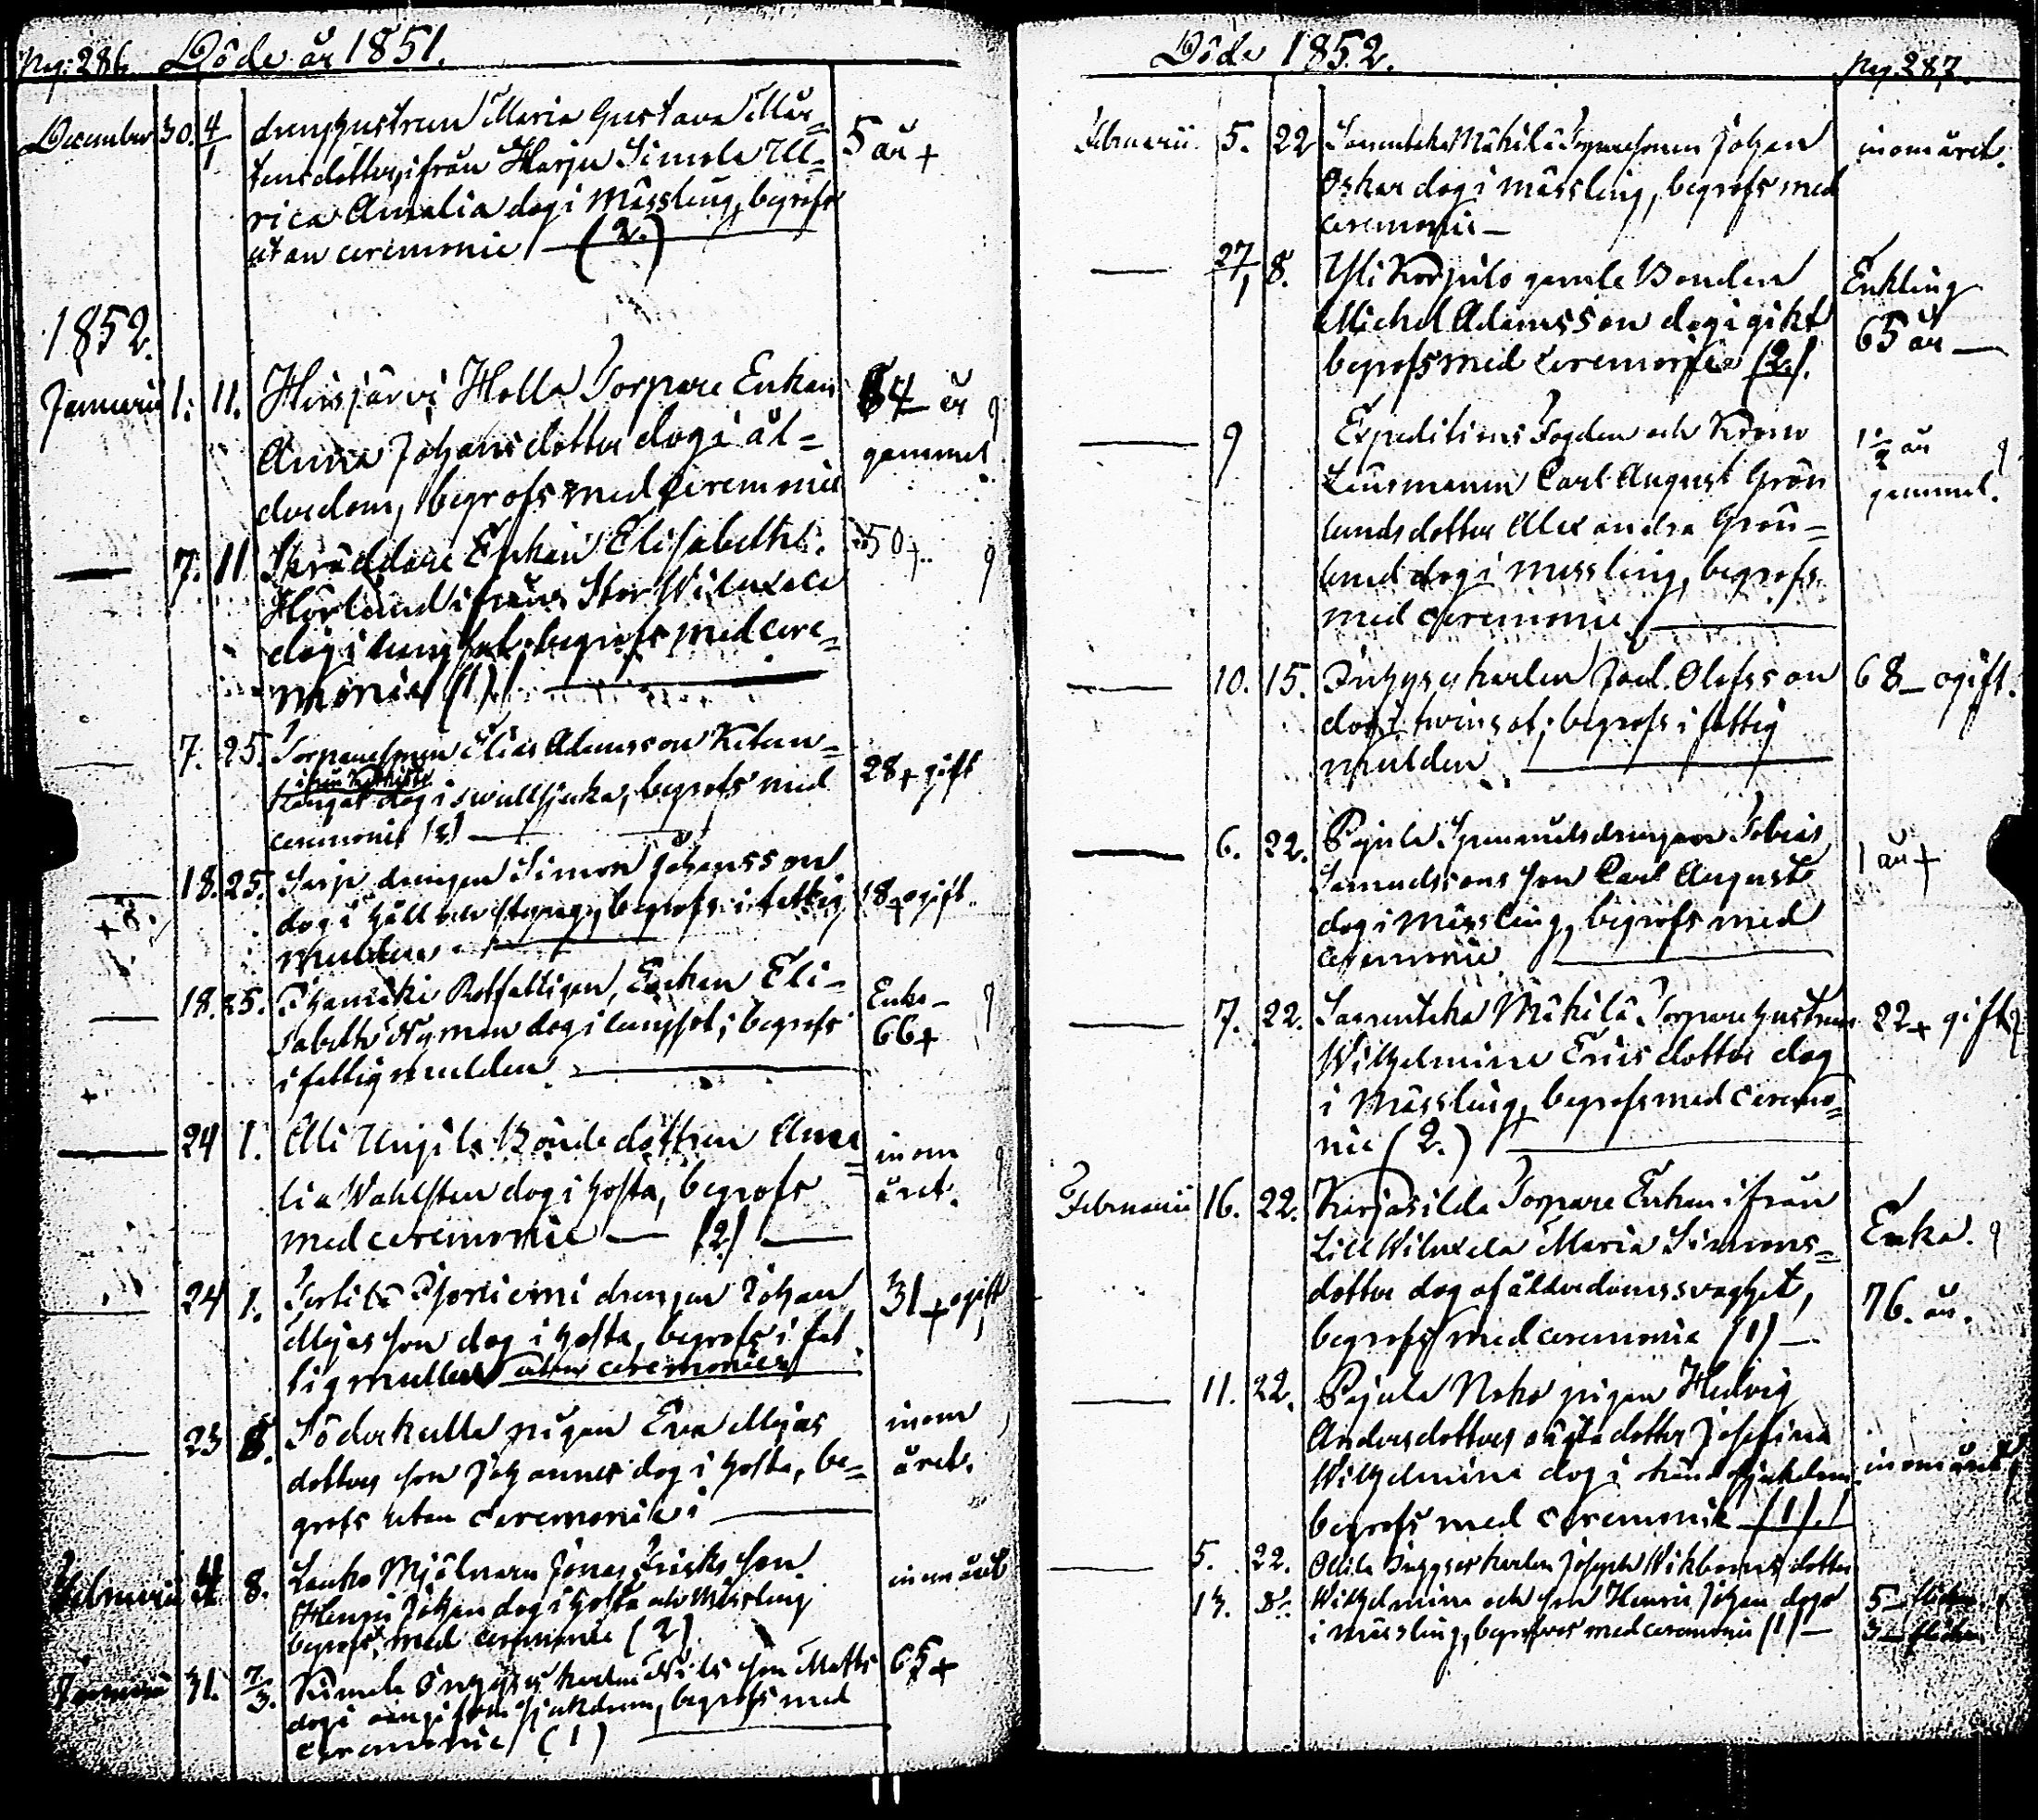 Pag: 286. Döde år 1851.
December 30. 4/1 drenghustrun Maria Gustava Mår-
tensdotter, ifrån Harju Simola Ull-
rica Amalia dog i Mässling, begrofs
utan ceremonie (2.)
5 år +
1852.
Januarii 1. 11. Hirsjärvi Holla Torpare Enkan
Anna Johansdotter dog i ål-
derdom, begrofs med ceremonie
84 år
gammel
7. 11. Skräddare Enkan Elisabeth
Hörlund ifrån Stor Wilaxela
dog i lungsot, begrofs med cere-
monie (1)
50 +
7. 25. Torparesonen Elias Adamsson
dog i swullsjuka, begrofs med
ceremonie (2)
28 + gift
18. 25. Sarja drengen Simon Johansson
dog i håll och styng, begrofs i fattig
mullden
18 + ogift
18. 25. Rotfattigen, Enkan Eli-
sabeth Nyman dog i lungsot; begrofs
i fattigmulden
Enka -
66 +
24 1. Alli Unjila Bondedottren Ama
lia Wahlsten dog i hosta, begrofs
med ceremonie (2)
inom
året.
24 1. drengen Johan
son dog i hosta, begrofs i fat
tigmullen utan ceremonier
31 + ogift
23 8. Söderkulla pigan Eva
dotters son Johannes dog i hosta, be-
grofs utan ceremonie
inom
året.
Februarii 4 8. Mjölnarn Jonas son
Henric Johan dog i hosta och Mässling
begrofs med ceremonie (2)
inom året
Januarii 31. 7/3. Simola Inhyses karlen Nils son Matts
dog i sjukdom, begrofs med
ceremonie (1)
65 +
Döde 1852. Pag 287.
Februarii. 5. 22 Mäkilä Torparesonen Johan
Oskar dog i mässling, begrofs med
ceremonie
inom året.
27/1 8. Yli Korjulo gamle Bonden
Michel Adamsson dog i gikt
begrofs med ceremonie (2).
Enkling
65 år
9 Expeditions Fogden och Krono
Länsmannen Carl August Grön
lunds dotter Alexandra Grön-
lund dog i messling, begrofs
med ceremonie
1 1/2 år
gammel.
10. 15. Inhyses karlen Joel Olofsson
dog i twinsot; begrofs i fattig
mulden
68 - ogift.
6. 22. drengen Tobias
Samuelssons son Carl August
dog i Mässling, begrofs med
ceremonie
1 år +
7. 22. Mäkilä Torpare hustrun
Wilhelmina Ericsdotter dog
i Mässling, begrofs med ceremo-
nie (2.)
22 + gift
Februarii 16. 22. Torpare Enkan ifrån
Lill Wilaxela Maria Simons-
dotter dog af ålderdomssvaghet,
begrofs med ceremonie (1)
Enka.
76. år.
11. 22. pigan Hedvig
Andersdotters oägta dotter Josefina
Wilhelmina dog i okänd sjukdom
begrofs med ceremonie (1)
inom året
5. 22. Inhyses karlen Joseph Wikboms dotter
13. Wilhelmina och son Henric Johan dogo
i mässling, begrofvos med ceremonie (1)
5
3